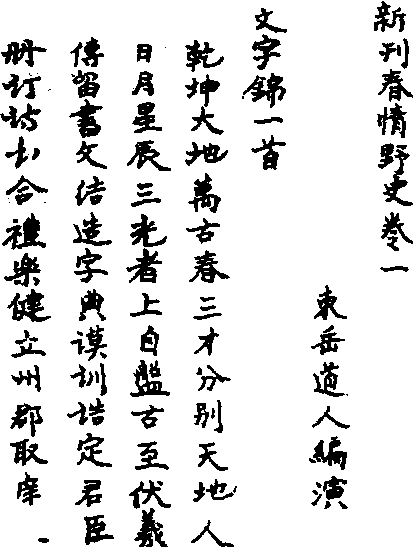 新刊春情野史卷一
東岳道人編演
文字錦一首
乾坤大地萬古春三才分别天地人
日月星辰三光者上自盤古至伏羲
傳留書文结造字典謨訓誥定君臣
册订诗书合禮樂健立州郡取庠